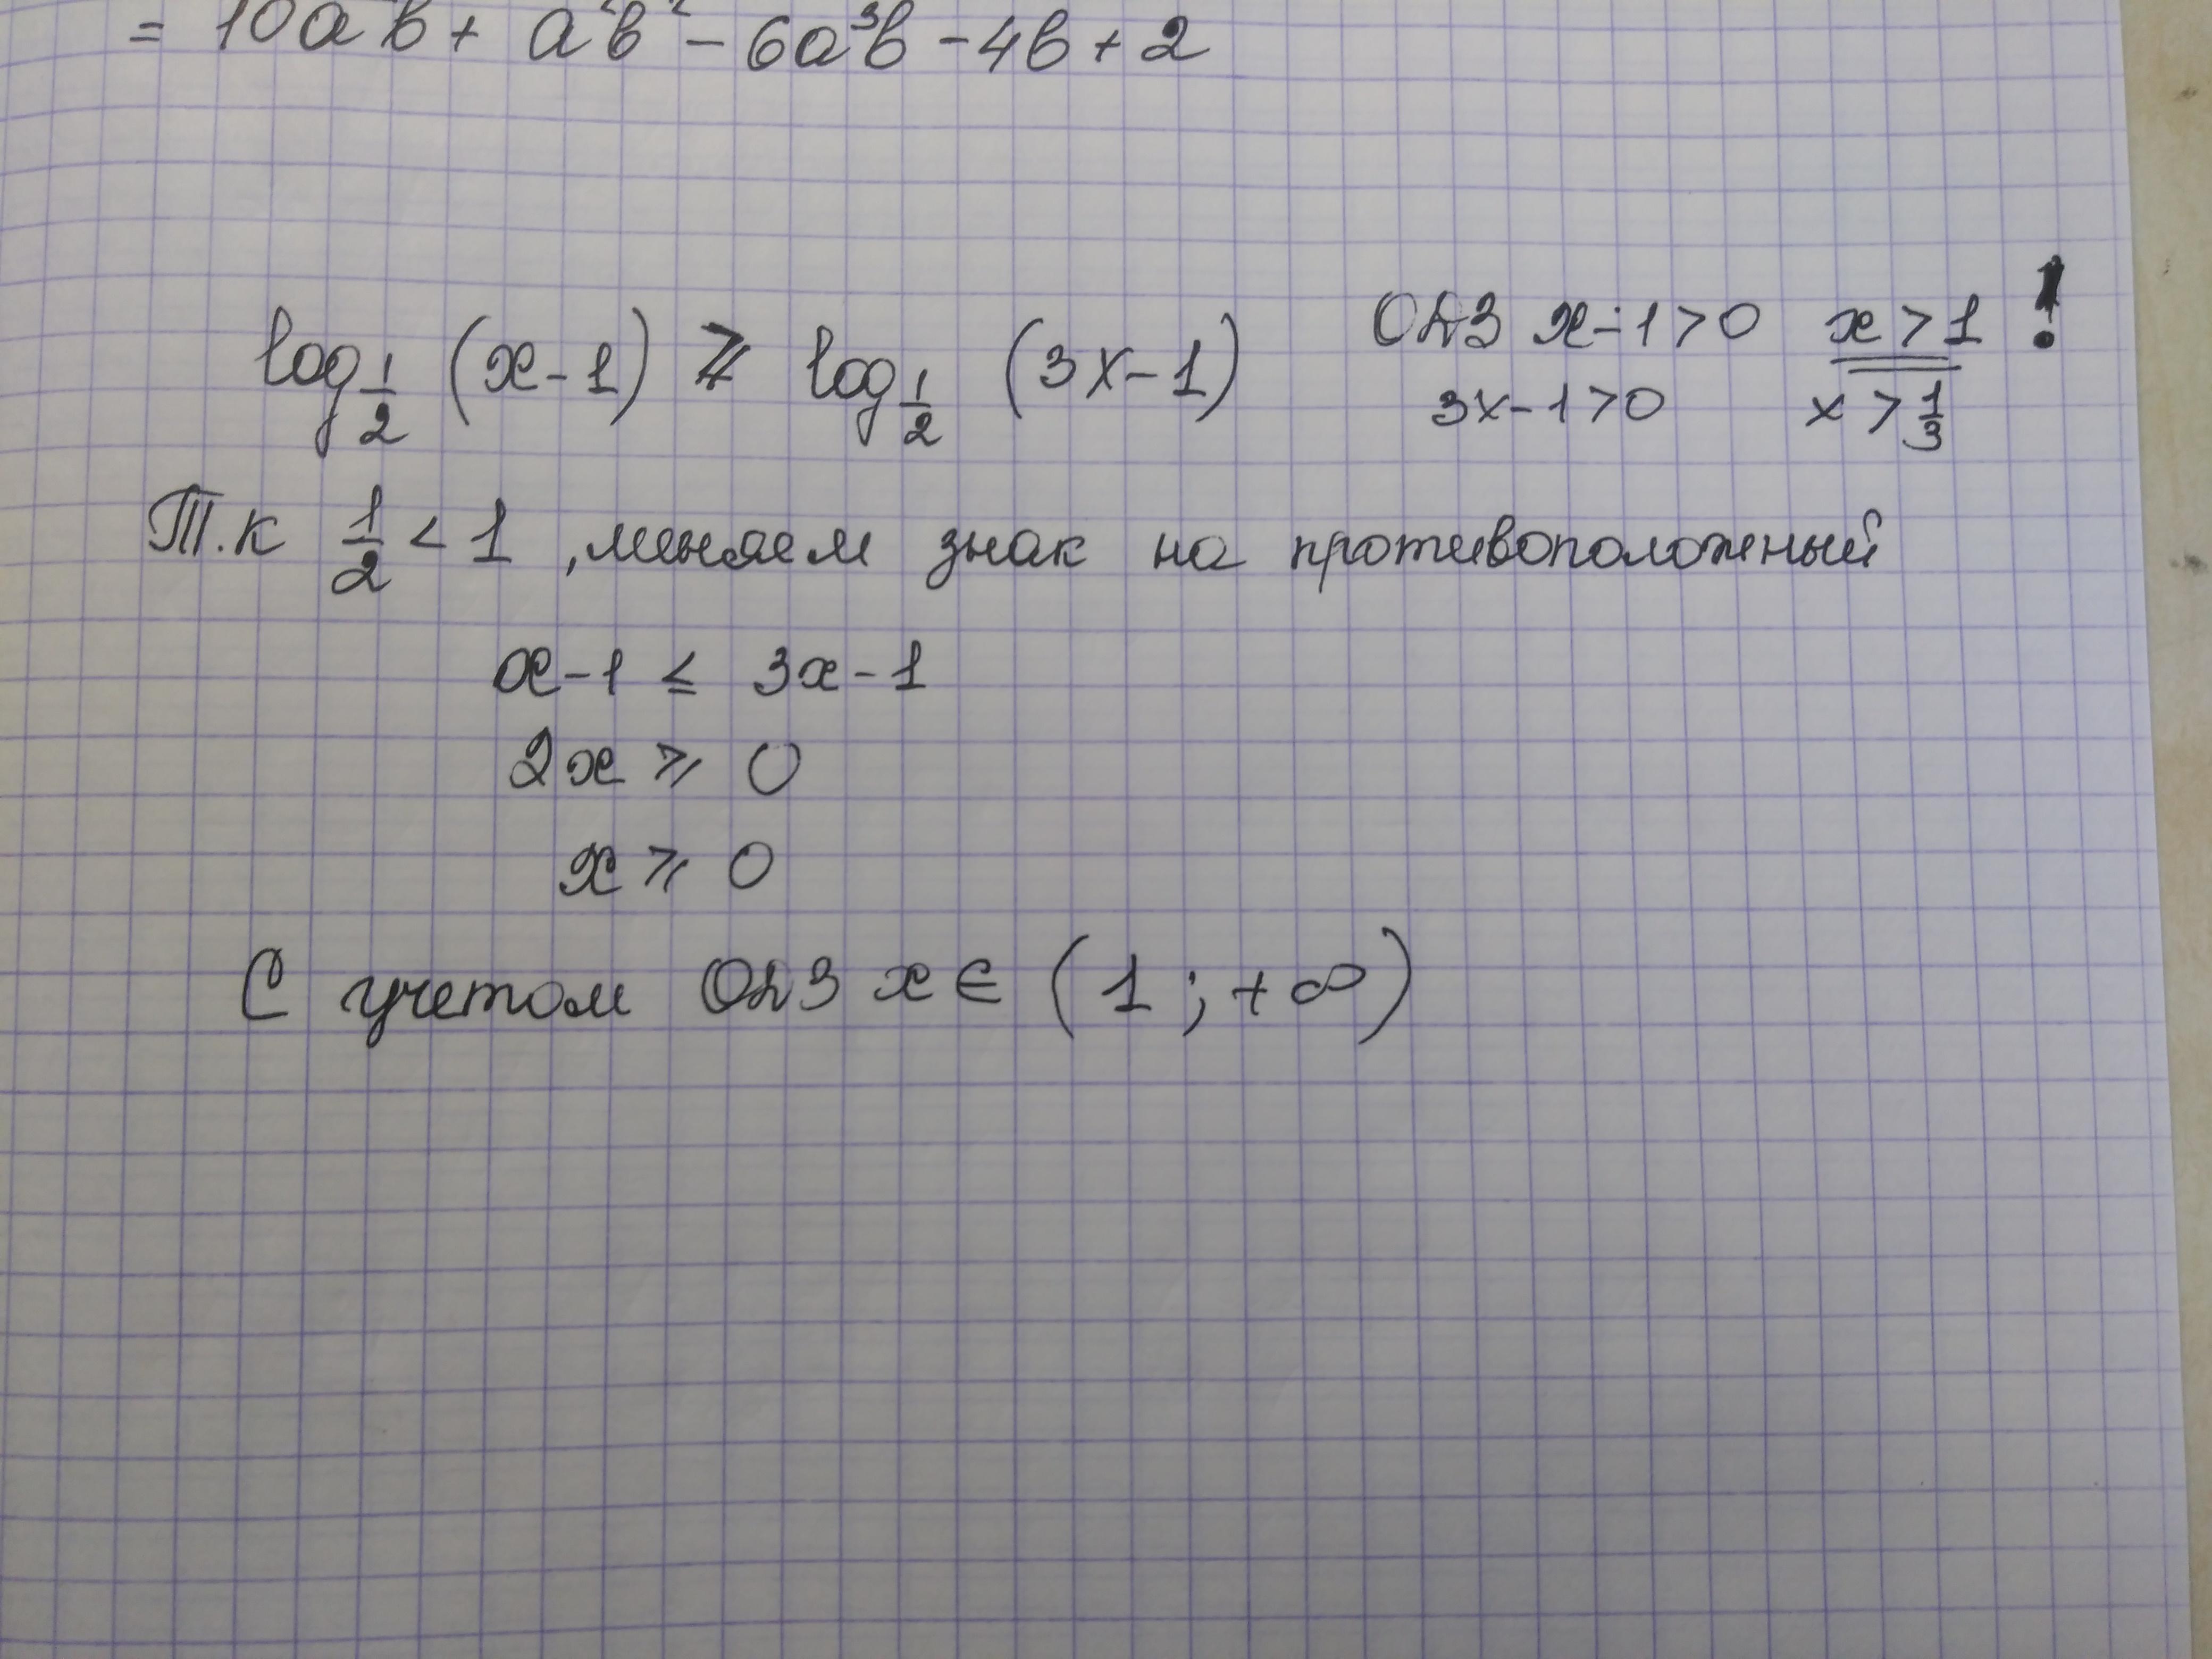 = 10a²b + a²b² - 6a³b - 4b + 2
log_{1/2} (x-1) ⩾ log_{1/2} (3x-1)
ОДЗ x-1>0 x>1 !
3x-1>0 x>1/3
Т.к 1/2 < 1, меняем знак на противоположный
x-1 ≤ 3x-1
2x ⩾ 0
x ⩾ 0
С учетом ОДЗ x ∈ (1; +∞)